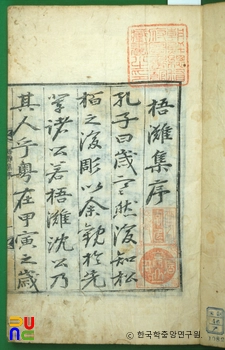 梧灘集序
孔子曰歲寒然後知松
栢之後彫以余觀於先
輩諸公若梧灘沈公乃
其人乎粤在甲寅之歲
© 한국학중앙연구원